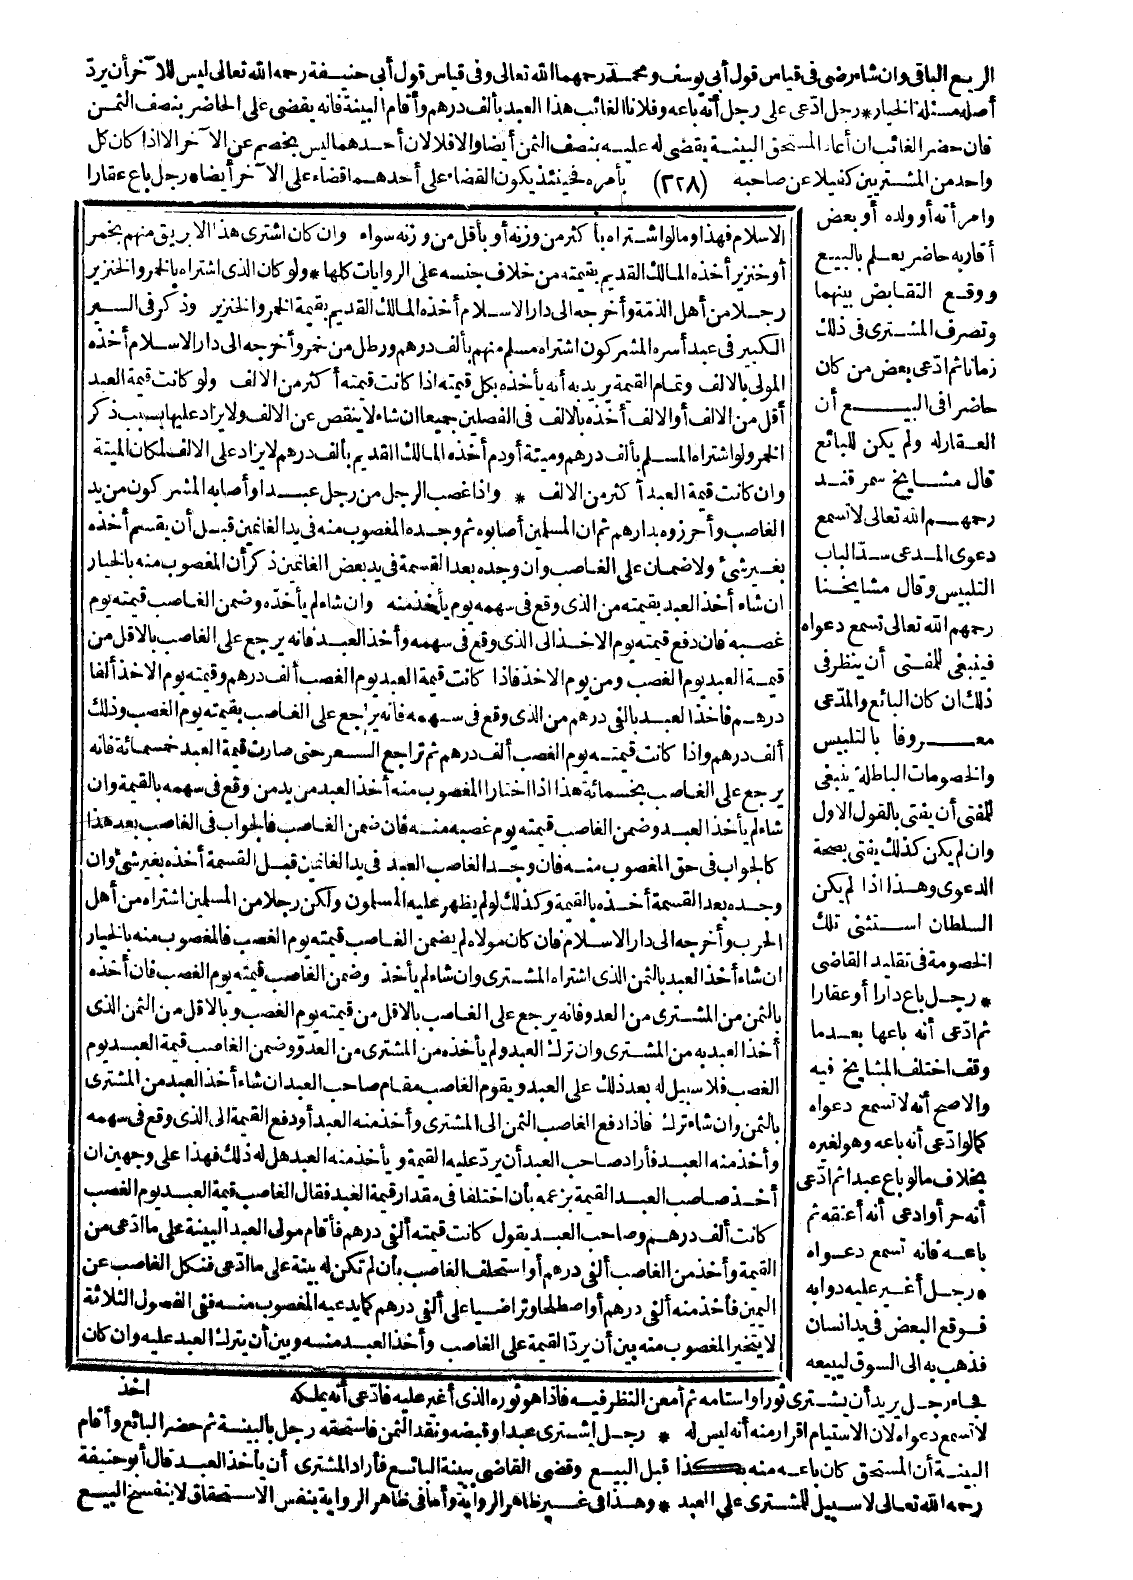 الربع الباقى وان شاء رضى فى قياس قول أبى يوسف ومحمد رحمهما الله تعالى وفى قياس قول أبى حنيفة رحمه الله تعالى ليس للآخر أن يردّ
أصله مسئلة الخيار * رجل ادّعى على رجل أنه باعه وفلانا الغائب هذا العبد بألف درهم وأقام البينة فانه يقضى على الحاضر بنصف الثمن
فان حضر الغائب ان أعاد المستحق البينة يقضى له عليه بنصف الثمن أيضا والا فلا لان أحدهما ليس بخصم عن الآخر الا اذا كان كل
واحد من المشتريين كفيلا عن صاحبه (٣٢٨) بأمره فحينئذ يكون القضاء على أحدهما قضاء على الآخر أيضا * رجل باع عقارا
وامرأته أو ولده أو بعض
أقاربه حاضر يعلم بالبيع
ووقع التقابض بينهما
وتصرف المشترى فى ذلك
زمانا ثم ادّعى بعض من كان
حاضرا فى البيع أن
العقار له ولم يكن للبائع
قال مشايخ سمرقند
رحمهم الله تعالى لا تسمع
دعوى المدعى سدّا لباب
التلبيس وقال مشايخنا
رحمهم الله تعالى تسمع دعواه
فينبغى للمفتى أن ينظر فى
ذلك ان كان البائع والمدّعى
معروفا بالتلبيس
والخصومات الباطلة ينبغى
للمفتى أن يفتى بالقول الاول
وان لم يكن كذلك يفتى بصحة
الدعوى وهذا اذا لم يكن
السلطان استثنى تلك
الخصومة فى تقليد القاضى
* رجل باع دارا أو عقارا
ثم ادّعى أنه باعها بعدما
وقف اختلف المشايخ فيه
والاصح أنه لا تسمع دعواه
كما لو ادّعى أنه باعه وهو لغيره
بخلاف ما لو باع عبدا ثم ادّعى
أنه حر أو ادعى أنه أعتقه ثم
باعه فانه تسمع دعواه
* رجل أغير عليه دوابه
فوقع البعض فى يد انسان
فذهب به الى السوق ليبيعه
فجاء رجل يريد أن يشترى ثورا واستامه ثم أمعن النظر فيه فاذا هو ثوره الذى أغير عليه فادّعى أنه يملكه
لا تسمع دعواه لان الاستيام اقرار منه أنه ليس له * رجل اشترى عبدا وقبضه ونقد الثمن فاستحقه رجل بالبينة ثم حضر البائع وأقام
البينة أن المستحق كان باعه منه بكذا قبل البيع وقضى القاضى ببينة البائع فأراد المشترى أن يأخذ العبد قال أبو حنيفة
رحمه الله تعالى لا سبيل للمشترى على العبد * وهذا فى غير ظاهر الرواية وأما فى ظاهر الرواية بنفس الاستحقاق لا ينفسخ البيع
الاسلام فهذا وما لو اشتراه بأكثر من وزنه أو بأقل من وزنه سواء وان كان اشترى هذا الابريق منهم بخمر
أو خنزير أخذه المالك القديم بقيمته من خلاف جنسه على الروايات كلها * ولو كان الذى اشتراه بالخمر والخنزير
رجلا من أهل الذمّة وأخرجه الى دار الاسلام أخذه المالك القديم بقيمة الخمر والخنزير وذكر فى السير
الكبير فى عبد أسره المشركون اشتراه مسلم منهم بألف درهم ورطل من خمر وأخرجه الى دار الاسلام أخذه
المولى بالالف وتمام القيمة يريد به أنه يأخذه بكل قيمته اذا كانت قيمته أكثر من الالف ولو كانت قيمة العبد
أقل من الالف أو الالف أخذه بالالف فى الفصلين جميعا ان شاء لا ينقص عن الالف ولا يزاد عليها بسبب ذكر
الخمر ولو اشتراه المسلم بألف درهم وميتة أو دم أخذه المالك القديم بألف درهم لا يزاد على الالف لمكان الميتة
وان كانت قيمة العبد أكثر من الالف * واذا غصب الرجل من رجل عبدا وأصابه المشركون من يد
الغاصب وأحرزوه بدارهم ثم ان المسلمين أصابوه ثم وجده المغصوب منه فى يد الغانمين قبل أن يقسم أخذه
بغير شئ ولا ضمان على الغاصب وان وجده بعد القسمة فى يد بعض الغانمين ذكر أن المغصوب منه بالخيار
ان شاء أخذ العبد بقيمته من الذى وقع فى سهمه يوم يأخذ منه وان شاء لم يأخذه وضمن الغاصب قيمته يوم
غصبه فان دفع قيمته يوم الاخذ الى الذى وقع فى سهمه وأخذ العبد فانه يرجع على الغاصب بالاقل من
قيمة العبد يوم الغصب ومن يوم الاخذ فاذا كانت قيمة العبد يوم الغصب ألف درهم وقيمته يوم الاخذ ألفا
درهم فاخذ العبد بألفى درهم من الذى وقع فى سهمه فانه يرجع على الغاصب بقيمته يوم الغصب وذلك
ألف درهم واذا كانت قيمته يوم الغصب ألف درهم ثم تراجع السعر حتى صارت قيمة العبد خمسمائة فانه
يرجع على الغاصب بخمسمائة هذا اذا اختار المغصوب منه أخذ العبد من يد من وقع فى سهمه بالقيمة وان
شاء لم يأخذ العبد وضمن الغاصب قيمته يوم غصبه منه فان ضمن الغاصب فالجواب فى الغاصب بعد هذا
كالجواب فى حق المغصوب منه فان وجد الغاصب العبد فى يد الغانمين قبل القسمة أخذه بغير شئ وان
وجده بعد القسمة أخذه بالقيمة وكذلك لو لم يظهر عليه المسلمون ولكن رجلا من المسلمين اشتراه من أهل
الحرب وأخرجه الى دار الاسلام فان كان مولاه لم يضمن الغاصب قيمته يوم الغصب فالمغصوب منه بالخيار
ان شاء أخذ العبد بالثمن الذى اشتراه المشترى وان شاء لم يأخذ وضمن الغاصب قيمته يوم الغصب فان أخذه
بالثمن من المشترى من العدو فانه يرجع على الغاصب بالاقل من قيمته يوم الغصب وبالاقل من الثمن الذى
أخذ العبد به من المشترى وان ترك العبد ولم يأخذه من المشترى من العدوّ وضمن الغاصب قيمة العبد يوم
الغصب فلا سبيل له بعد ذلك على العبد ويقوم الغاصب مقام صاحب العبد ان شاء أخذ العبد من المشترى
بالثمن وان شاء ترك فاذا دفع الغاصب الثمن الى المشترى وأخذ منه العبد أو دفع القيمة الى الذى وقع فى سهمه
وأخذ منه العبد فأراد صاحب العبد أن يردّ عليه القيمة ويأخذ منه العبد هل له ذلك فهذا على وجهين ان
أخذ صاحب العبد القيمة بزعمه بأن اختلفا فى مقدار قيمة العبد فقال الغاصب قيمة العبد يوم الغصب
كانت ألف درهم وصاحب العبد يقول كانت قيمته ألفى درهم فأقام مولى العبد البينة على ما ادّعى من
القيمة وأخذ من الغاصب ألفى درهم أو استحلف الغاصب بأن لم تكن له بينة على ما ادّعى فنكل الغاصب عن
اليمين فأخذ منه ألفى درهم أو اصطلحا وتراضيا على ألفى درهم كما يدعيه المغصوب منه ففى الفصول الثلاثة
لا يتخير المغصوب منه بين أن يردّ القيمة على الغاصب وأخذ العبد منه وبين أن يترك العبد عليه وان كان
اخذ